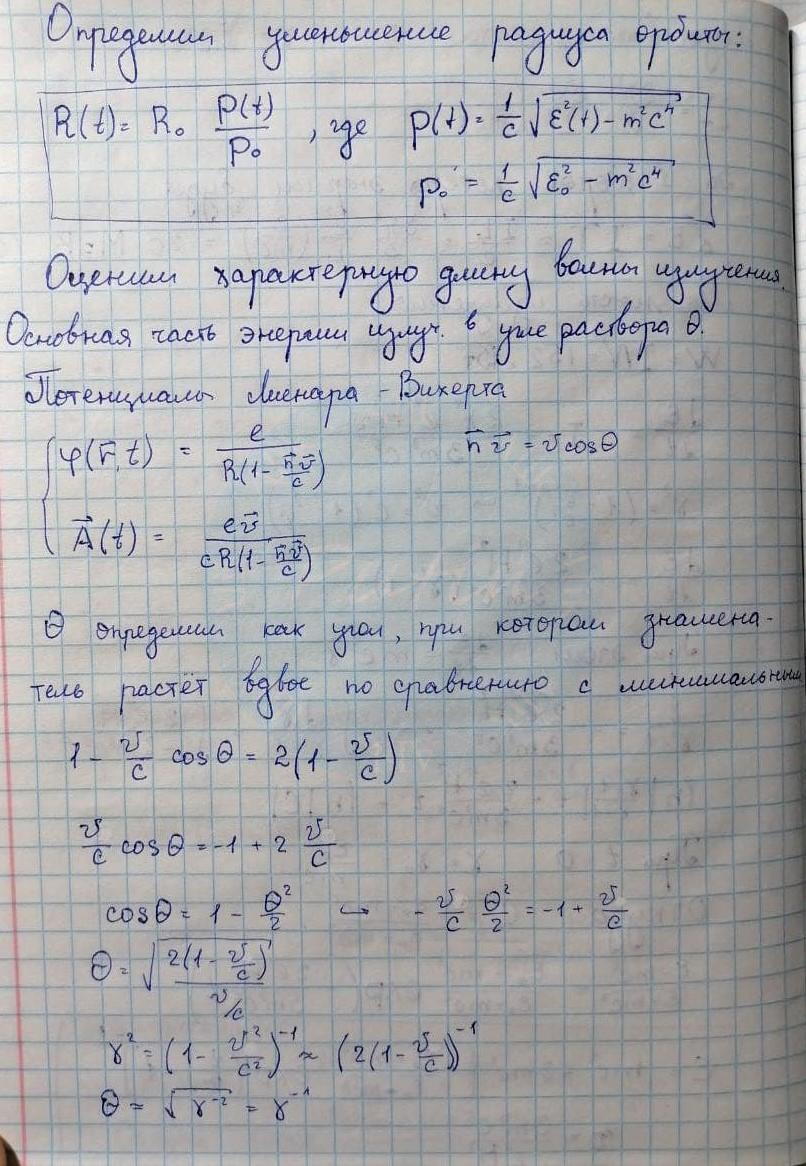 Определим уменьшение радиуса орбиты:
R(t) = R₀ p(t)/p₀ , где p(t) = 1/c √(ε²(t) − m²c⁴)
p₀ = 1/c √(ε₀² − m²c⁴)
Оценим характерную длину волны излучения.
Основная часть энергии излуч. в угле раствора θ.
Потенциалы Лиенара - Вихерта
φ(r⃗, t) = e / R(1 − n⃗v⃗/c)    n⃗ v⃗ = v cosθ
A⃗(t) = ev⃗ / cR(1 − n⃗v⃗/c)
θ определим как угол, при котором знамена-
тель растёт вдвое по сравнению с минимальным
1 − v/c cosθ = 2(1 − v/c)
v/c cosθ = −1 + 2 v/c
cosθ = 1 − θ²/2 ↪ − v/c θ²/2 = −1 + v/c
θ = √(2(1 − v/c) / v/c)
γ² = (1 − v²/c²)⁻¹ ≈ (2(1 − v/c))⁻¹
θ = √γ⁻² = γ⁻¹